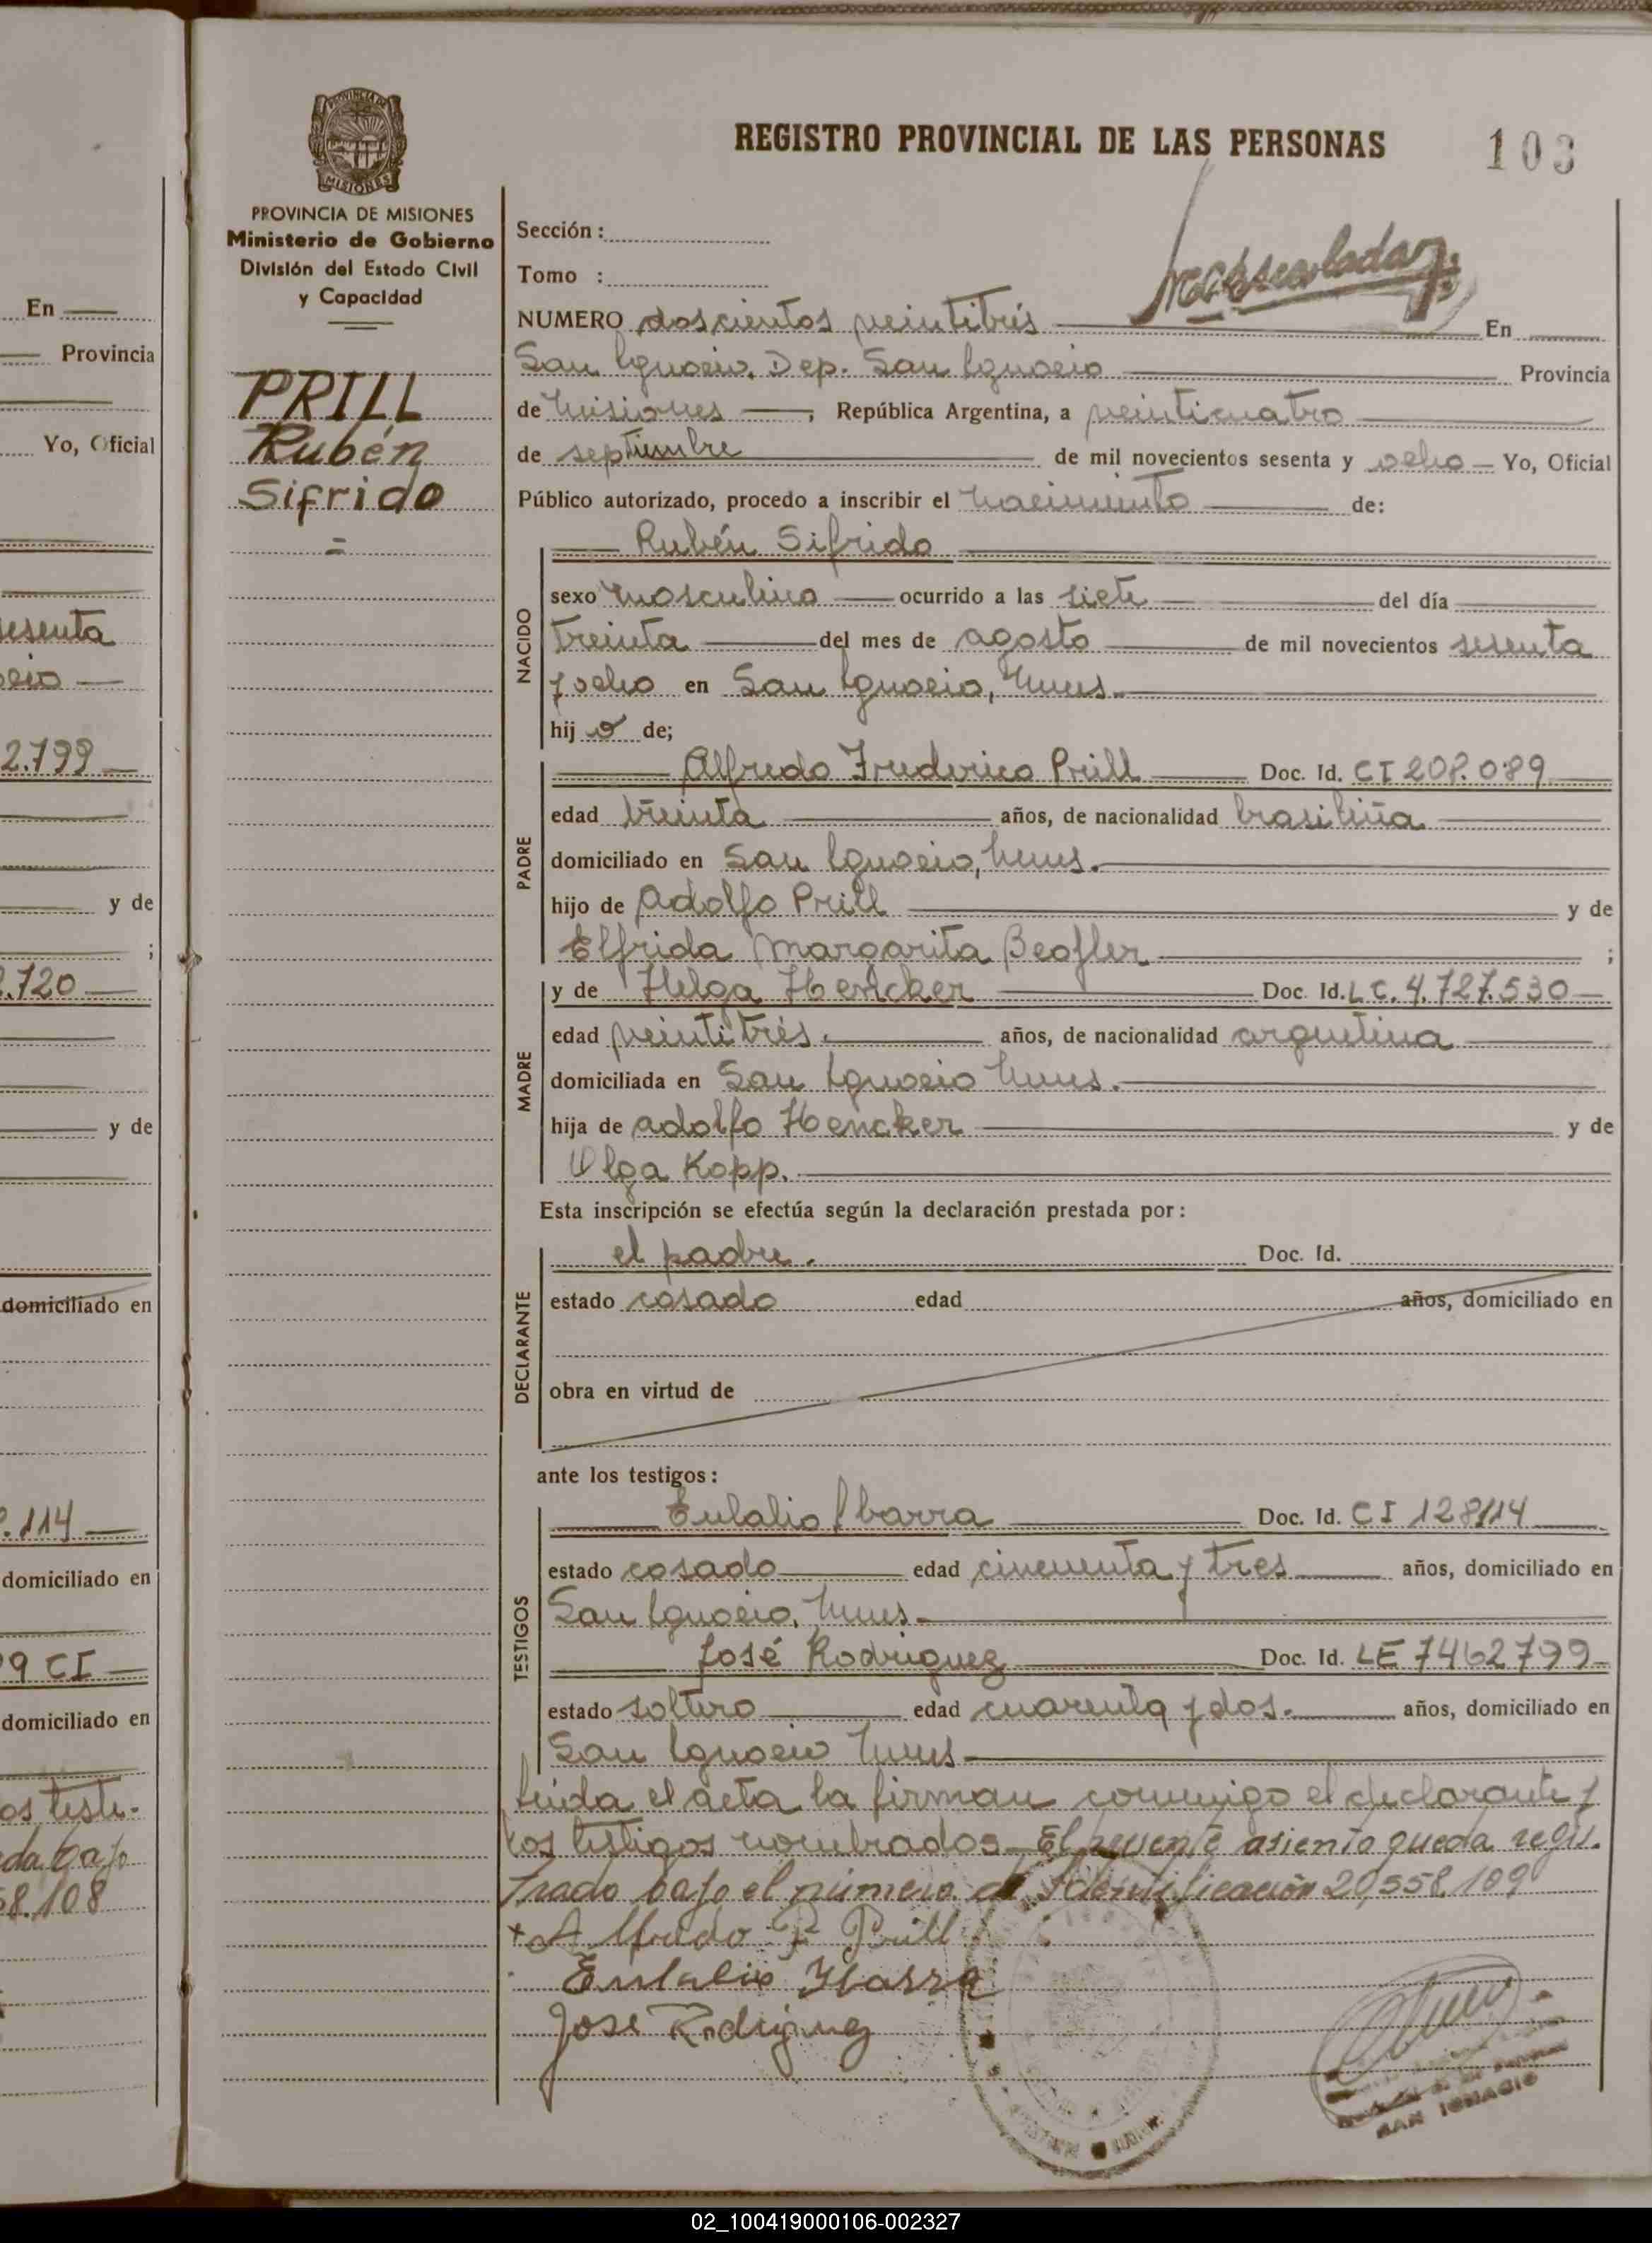 REGISTRO PROVINCIAL DE LAS PERSONAS
103
PROVINCIA DE
MISIONES
PROVINCIA DE MISIONES
Ministerio de Gobierno
División del Estado Civil
y Capacidad
PRILL
Rubén
Sifrido
=
Sección:
Tomo :
NUMERO doscientos veintitrés En
San Ignacio, Dep. San Ignacio Provincia
de Misiones, República Argentina, a veinticuatro
de septiembre de mil novecientos sesenta y ocho Yo, Oficial
Público autorizado, procedo a inscribir el nacimiento de:
NACIDO
Rubén Sifrido
sexo masculino ocurrido a las siete del día
treinta del mes de agosto de mil novecientos sesenta
y ocho en San Ignacio, Mnes.
hijo de;
PADRE
Alfredo Frederico Prill Doc. Id. CI 208.089
edad treinta años, de nacionalidad brasileña
domiciliado en San Ignacio, Mnes.
hijo de Adolfo Prill y de
Elfrida Margarita ;
MADRE
y de Helga Hencker Doc. Id. LC. 4.727.530
edad veintitrés. años, de nacionalidad argentina
domiciliada en San Ignacio Mnes.
hija de Adolfo Hencker y de
Olga Kopp.
Esta inscripción se efectúa según la declaración prestada por:
DECLARANTE
el padre. Doc. Id.
estado casado edad años, domiciliado en
obra en virtud de
ante los testigos:
TESTIGOS
Eulalio Ibarra Doc. Id. CI 128114
estado casado edad cincuenta y tres años, domiciliado en
San Ignacio, Mnes.
José Rodriguez Doc. Id. LE 7462799
estado soltero edad cuarenta y dos. años, domiciliado en
San Ignacio Mnes.
Leída el acta la firman conmigo el declarante y
los testigos nombrados. El presente asiento queda regis-
trado bajo el número de Identificación 20,558,109
+ Alfredo F Prill
Eulalio Ibarra
José Rodriguez
SAN IGNACIO
En
Provincia
Yo, Oficial
sesenta
2.799
y de
;
.720
y de
domiciliado en
.114
domiciliado en
9 CI
domiciliado en
os testi-
da bajo
58.108
02_100419000106-002327